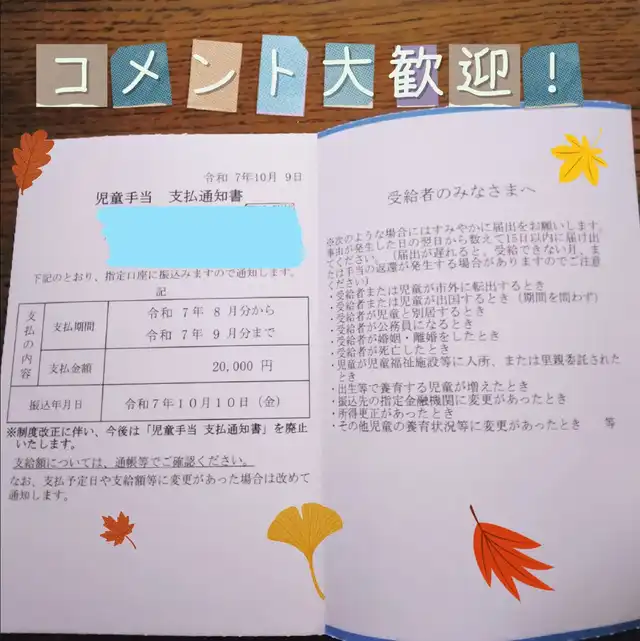 コメント大歓迎!
令和 7年10月 9日
児童手当 支払通知書
下記のとおり、指定口座に振込みますので通知します。
記
支払の内容
支払期間
令和 7年 8月分から
令和 7年 9月分まで
支払金額
20,000 円
振込年月日
令和7年10月10日(金)
※制度改正に伴い、今後は「児童手当 支払通知書」を廃止
いたします。
支給額については、通帳等でご確認ください。
なお、支払予定日や支給額等に変更があった場合は改めて
通知します。
受給者のみなさまへ
※次のような場合にはすみやかに届出をお願いします。
事由が発生した日の翌日から数えて15日以内に届け出
てください。(届出が遅れると、受給できない月、ま
たは手当の返還が発生する場合がありますのでご注意
ください)
・受給者または児童が市外に転出するとき
・受給者または児童が出国するとき(期間を問わず)
・受給者が児童と別居するとき
・受給者が公務員になるとき
・受給者が婚姻・離婚をしたとき
・受給者が死亡したとき
・児童が児童福祉施設等に入所、または里親委託された
とき
・出生等で養育する児童が増えたとき
・振込先の指定金融機関に変更があったとき
・所得更正があったとき
・その他児童の養育状況等に変更があったとき 等